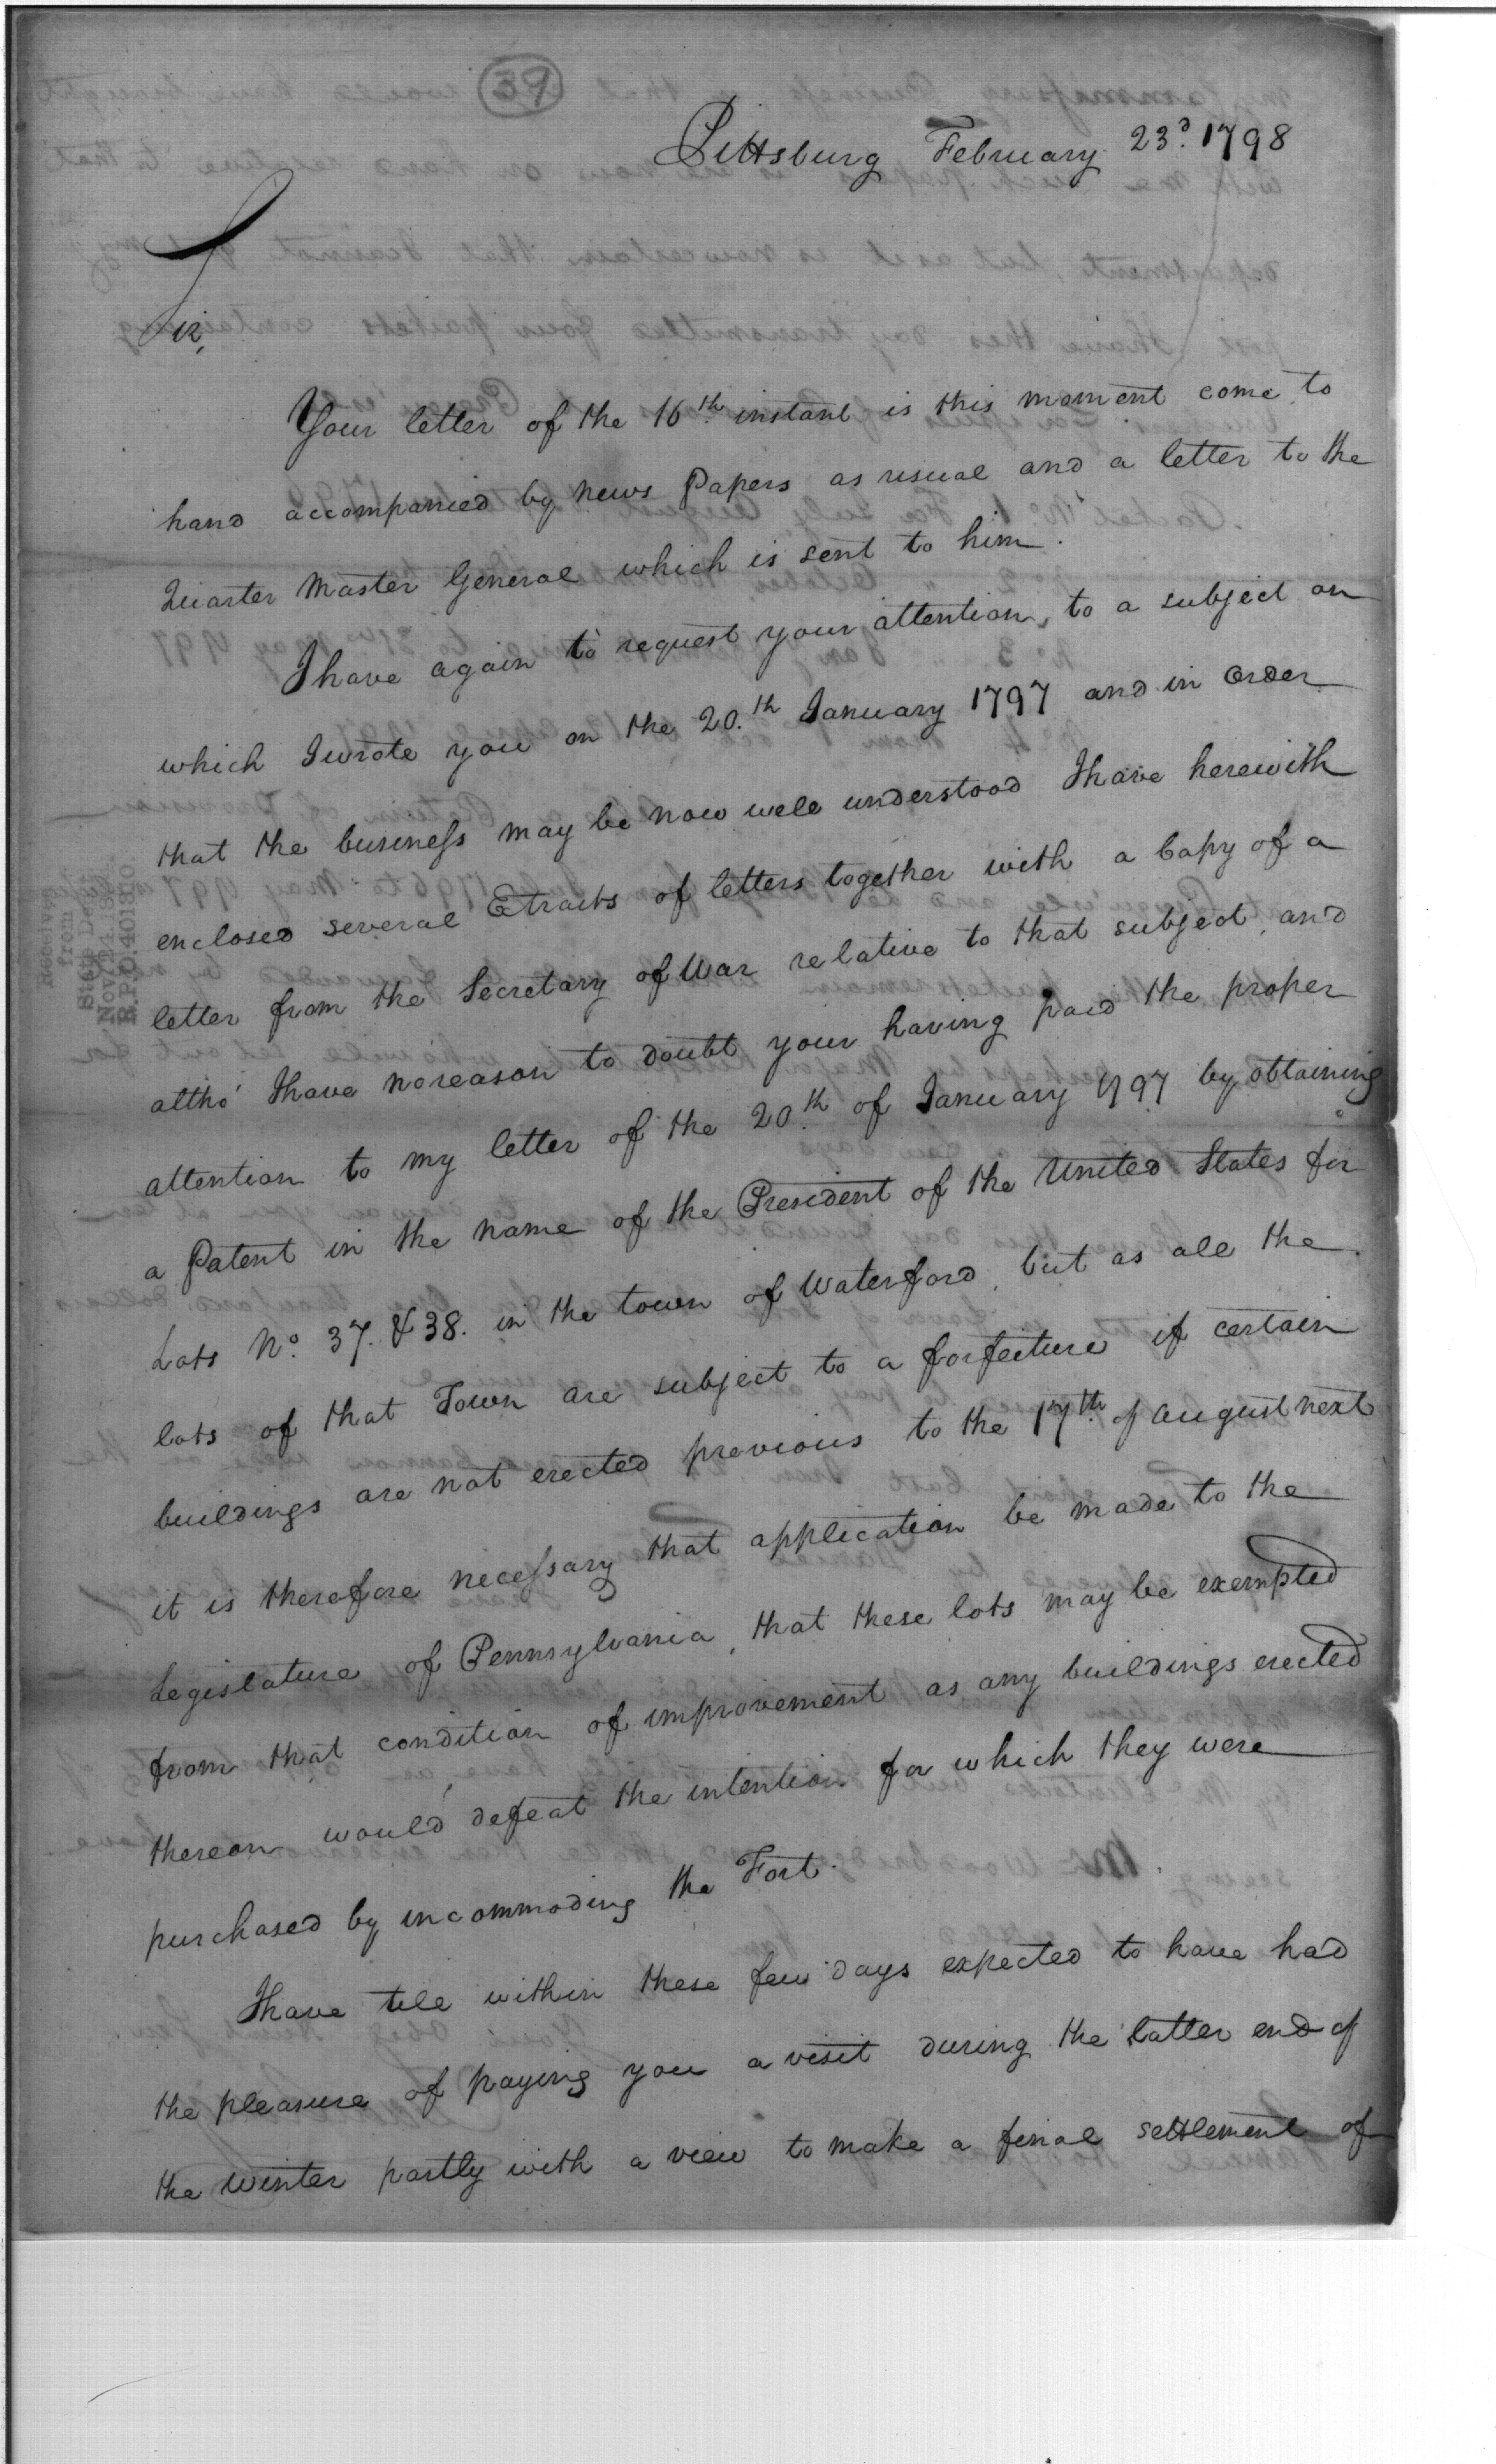 39
Pittsburg February 23d. 1798
Sir,
Your letter of the 16th. instant is this moment come to
hand accompanied by news Papers as usual and a letter to the
Quarter Master General which is sent to him.
I have again to request your attention, to a subject on
which I wrote you on the 20.th January 1797 and in order
that the business may be now well understood I have herewith
enclosed several Etracts of letters together with a Copy of a
letter from the Secretary of War relative to that subject, and
altho' I have no reason to doubt your having paid the proper
attention to my letter of the 20th. of January 1797 by obtaining
a Patent in the name of the President of the United States for
Lots No. 37. & 38. in the town of Waterford, but as all the
lots of that Town are subject to a forfeiture if certain
buildings are not erected previous to the 17th. of August next
it is therefore necessary that application be made to the
Legislature of Pennsylvania, that these lots may be exempted
from that condition of improvement as any buildings erected
thereon would defeat the intention for which they were
purchased by incommoding the Fort.
I have till within these few days expected to have had
the pleasure of paying you a visit during the latter end of
the winter partly with a view to make a final settlement of
Received
from
State Dept.
R.P.O. 401310